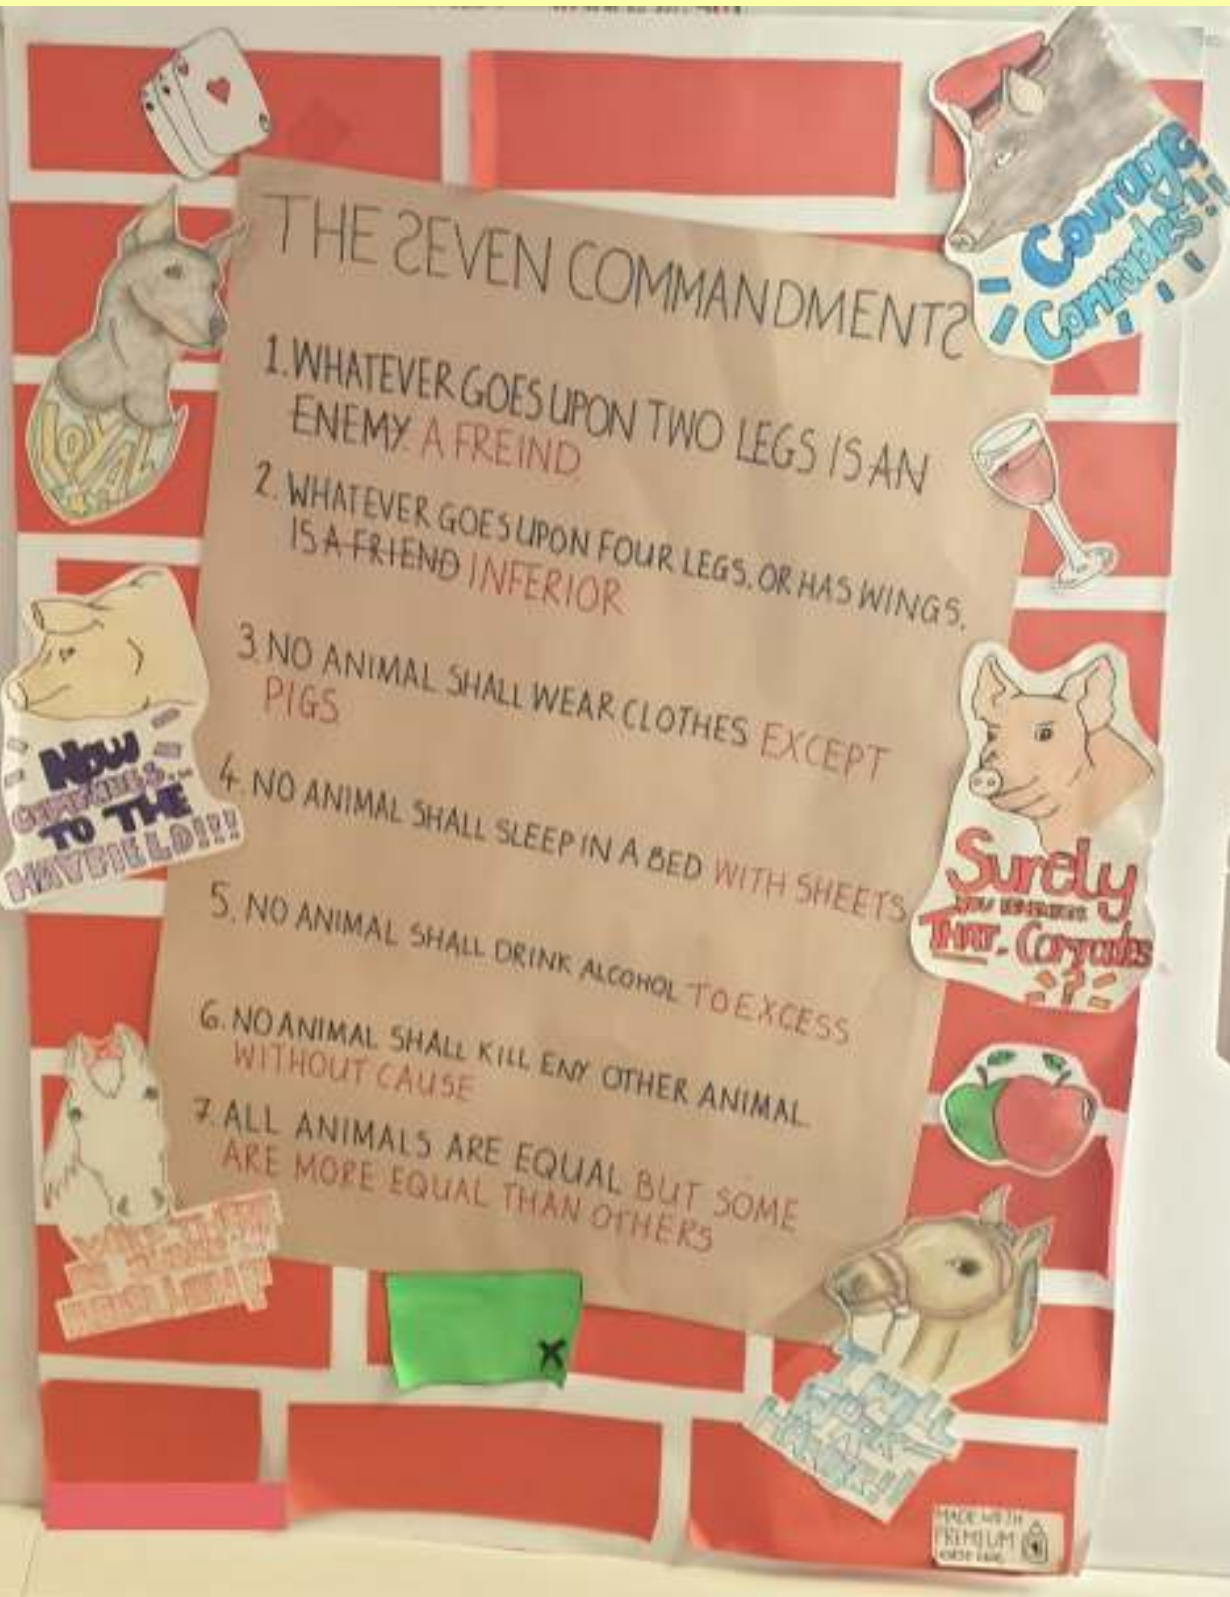 THE SEVEN COMMANDMENTS
1. WHATEVER GOES UPON TWO LEGS IS AN
ENEMY. A FREIND.
2. WHATEVER GOES UPON FOUR LEGS. OR HAS WINGS.
IS A FRIEND INFERIOR
3. NO ANIMAL SHALL WEAR CLOTHES EXCEPT
PIGS
4. NO ANIMAL SHALL SLEEP IN A BED WITH SHEETS
5. NO ANIMAL SHALL DRINK ALCOHOL TO EXCESS
6. NO ANIMAL SHALL KILL ENY OTHER ANIMAL
WITHOUT CAUSE
7. ALL ANIMALS ARE EQUAL BUT SOME
ARE MORE EQUAL THAN OTHERS
Courage
Comrades!!
LOYAL
NOW
COMRADES...
TO THE
HAYFIELD!!!
Surely
YOU REMEMBER
THAT. Comrades
?
I WILL
WORK
HARDER!!
MADE WITH
PREMIUM
X